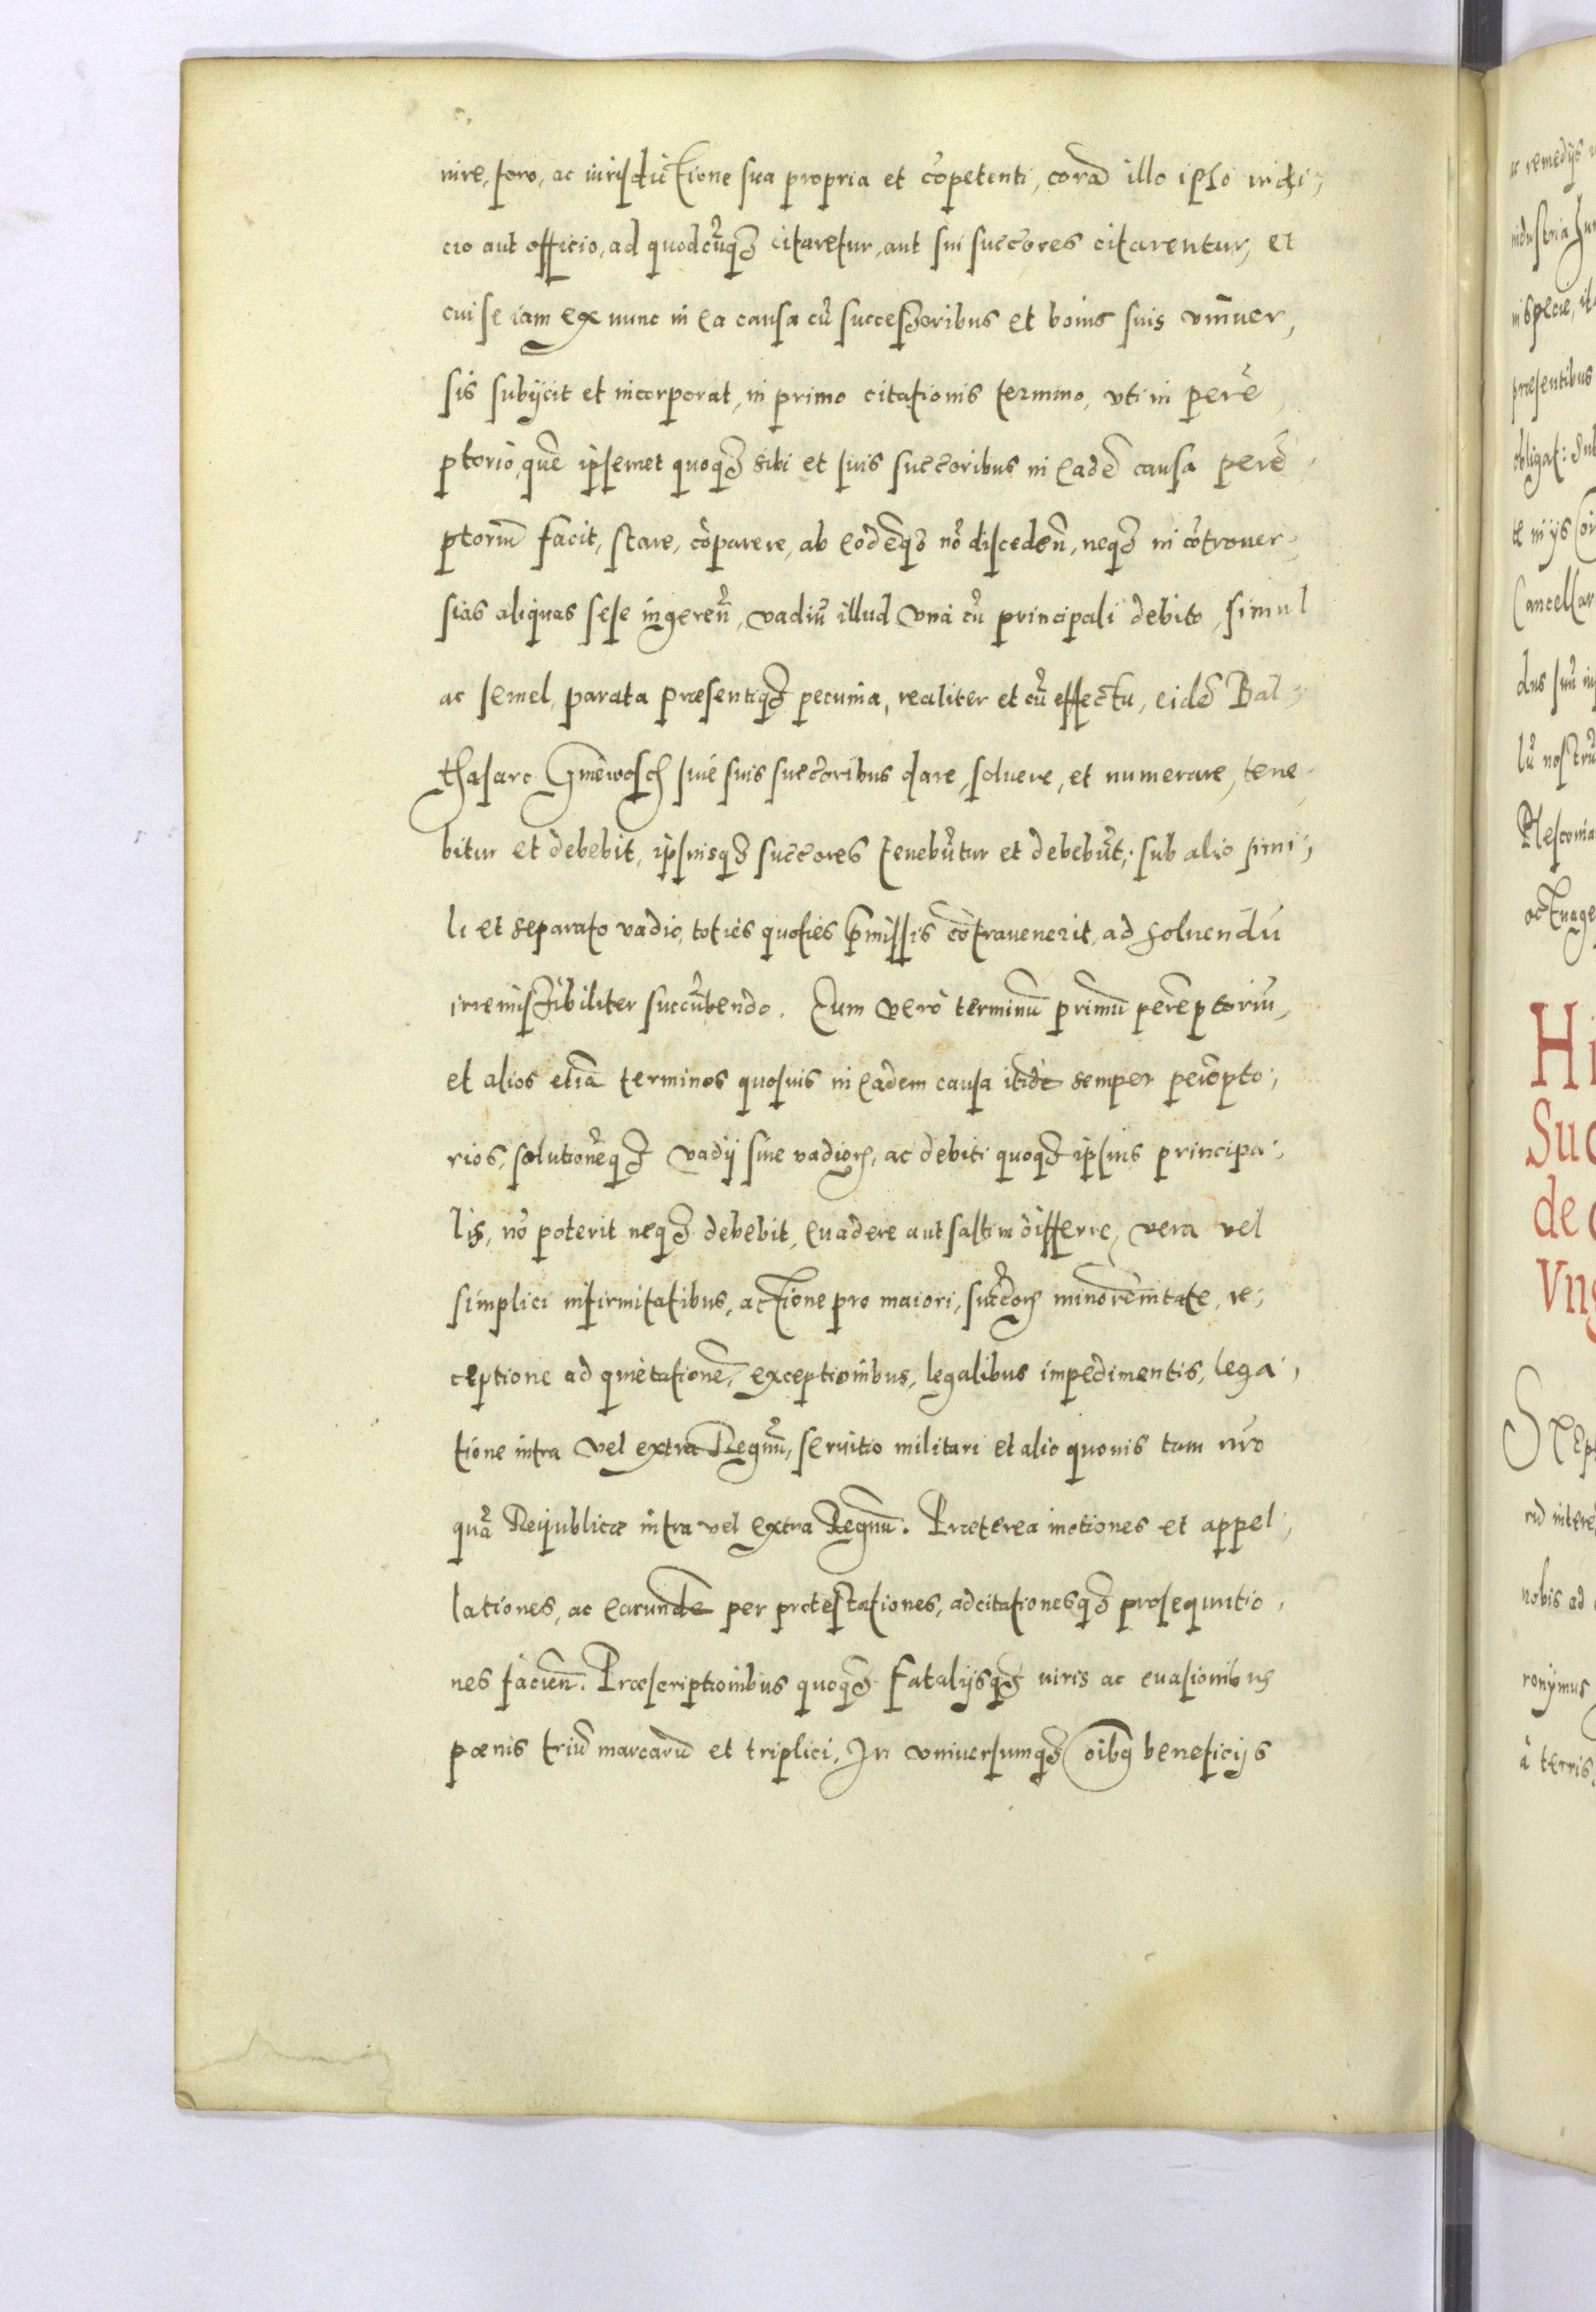 nire, foro, ac iurisdictione sua propria et cõpetenti, corã illo ipso iudi,
cio aut officio, ad quodcũqȝ citaretur, aut sui succores citarentur, et
cui se iam ex nunc in ea causa cũ successoribus et bonis suis vniuer,
sis subijcit et incorporat, in primo citationis termino, vti in perẽ
ptorio, quẽ ipsemet quoqȝ sibi et suis succoribus in eadẽ causa perẽ
ptoriũ facit, stare, cõparere, ab eodẽqȝ nõ disceden̄, neqȝ in cõtrouer,
sias aliquas sese ingeren̄, vadiũ illud vnà cũ principali debito, simul
ac semel, parata præsentiqȝ pecunia, realiter et cũ effectu, eidẽ Bal,
thasaro Gniewosch siue suis succoribus dare, soluere, et numerare, tene,
bitur et debebit, ipsiusqȝ succores tenebũtur et debebũt, sub alio simi,
li et separato vadio, toties quoties p̄missis cõtrauenerit, ad soluendũ
irremissibiliter succũbendo. Cum verò terminũ primũ perẽptoriũ,
et alios etiã terminos quosuis in eadem causa itidẽ semper perẽpto,
rios, solutionẽqȝ vadij siue vadiorꝫ, ac debiti quoqȝ ipsius principa,
lis, nõ poterit neqȝ debebit, euadere aut saltim differre, vera vel
simplici infirmitatibus, actione pro maiori, succorꝫ minorẽnitate, re,
ceptione ad quietationẽ, exceptionibus, legalibus impedimentis, lega,
tione intra vel extra Regnũ, seruitio militari et alio quouis tam nr̃o
quã Reipublicæ intra vel extra Regnũ. Præterea motiones et appel,
lationes, ac earundẽ per protestationes, adcitationesqȝ prosequutio,
nes facien̄. Præscriptionibus quoqȝ fatalijsqȝ iuris ac euasionibus
pœnis triũ marcarũ et triplici. In vniuersumqȝ oĩbꝰ beneficijs
ac remedijs
industria
in specie,
præsentibus
obligat:
te in ijs
Cancellar
lũ nostrũ
octuage
Hi
Suc
de
Vng
nobis ad
ronymus
à terris,